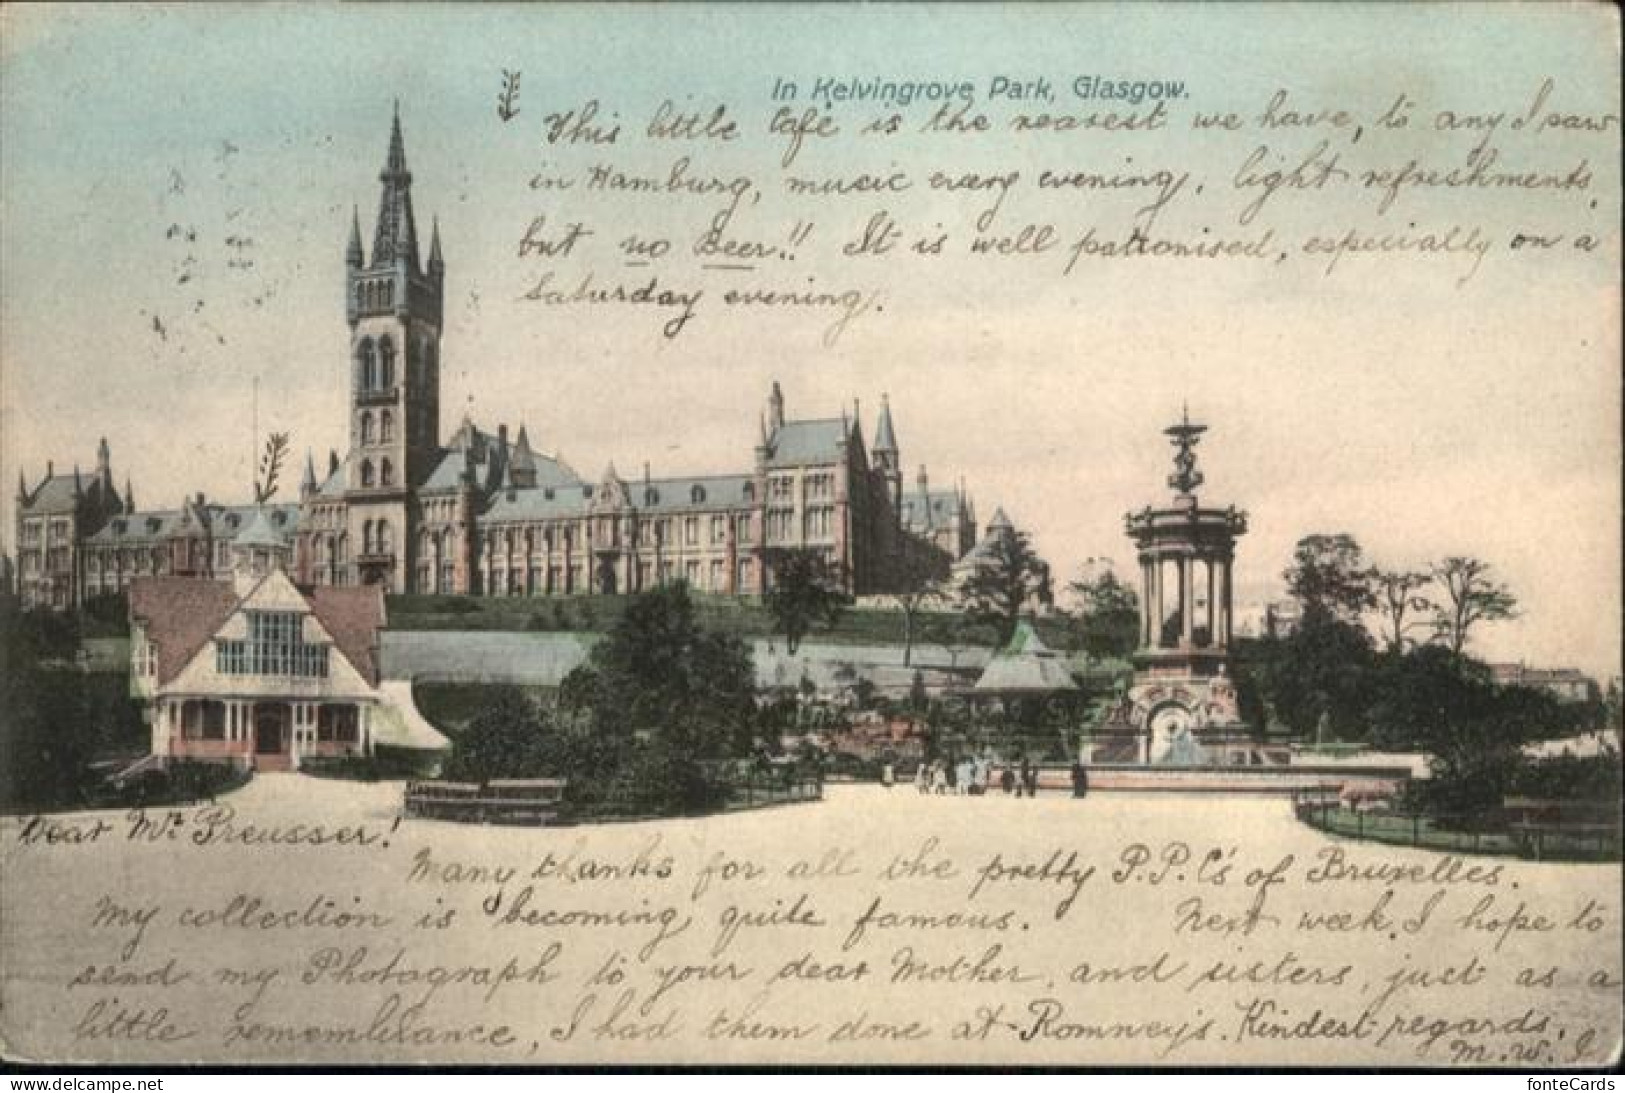 In Kelvingrove Park, Glasgow.
This little Café is the nearest we have, to any I saw
in Hamburg, music every evening, light refreshments,
but no Beer!! It is well patronised, especially on a
Saturday evening.
Dear Mr. Preusser!
Many thanks for all the pretty P.P.C's of Bruxelles.
My collection is becoming quite famous. Next week, I hope to
send my Photograph to your dear Mother, and sisters, just as a
little remembrance, I had them done at Romney's. Kindest regards.
M.W.
www.delcampe.net
fonteCards